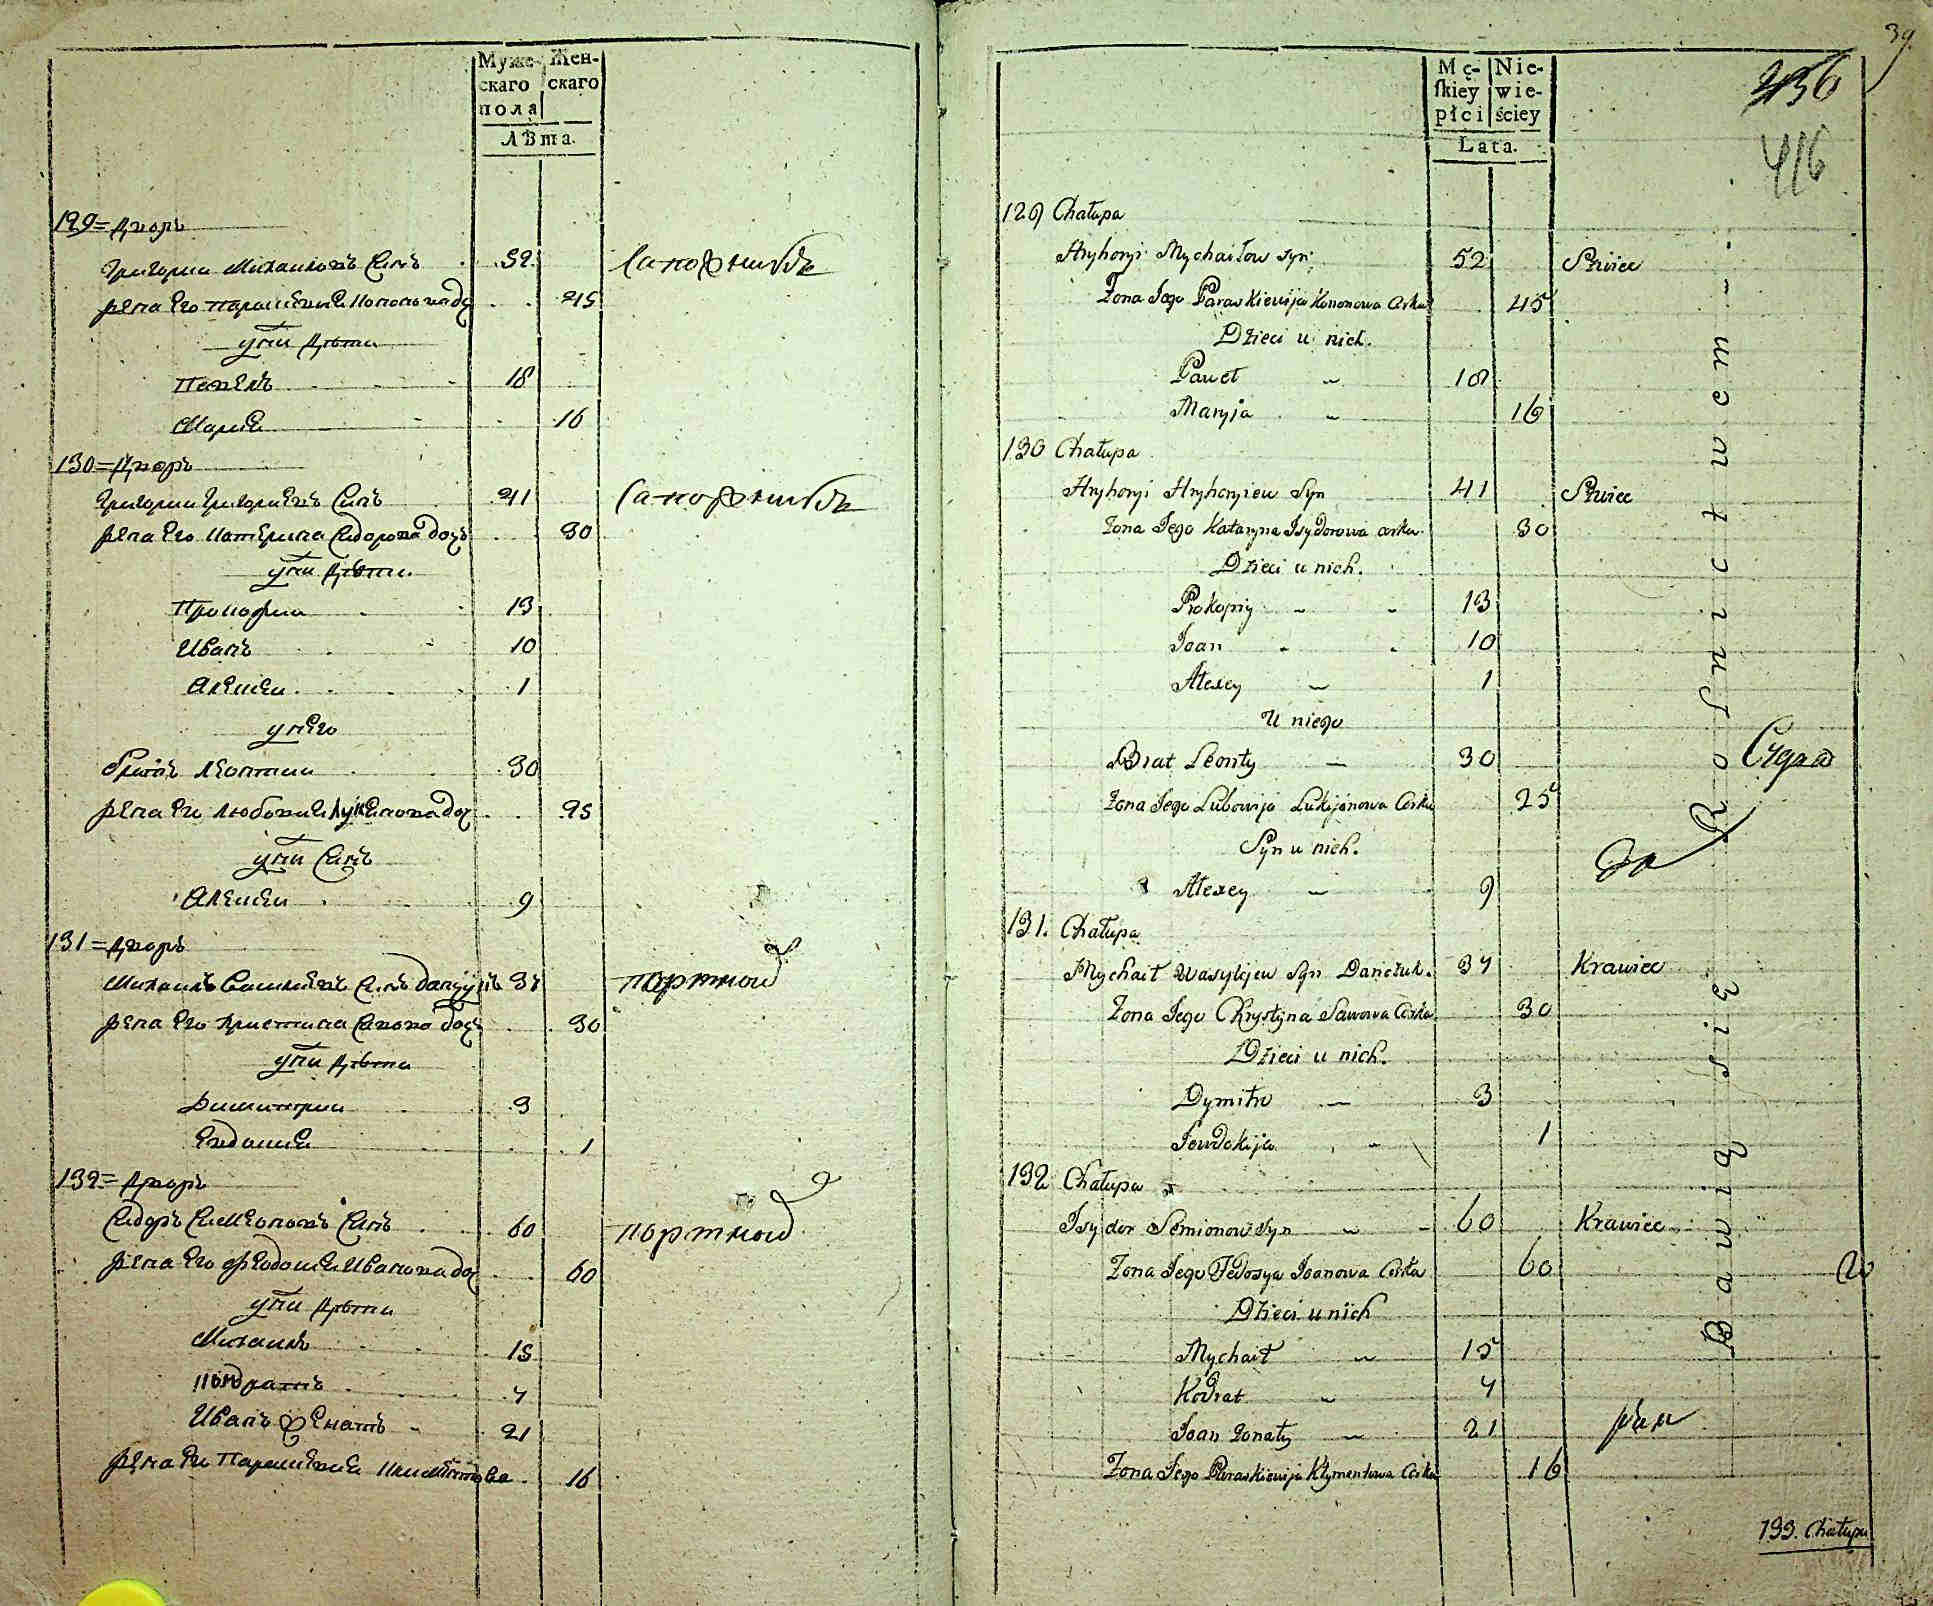 Муже-
скаго
пола
Жен-
скаго
Лѣта.
129 = Дворъ
Григории Михаиловъ Синъ 52 Сапожникъ
жена Его Параскевия Кононова доч 45
у ни дѣти
Павелъ 18
Мария 16
130 = Дворъ
Григории Григориевъ Синъ 41 Сапожникъ
жена Его Катерина Сидорова доч 30
у ни дѣти
Прокофии 13
Иванъ 10
Алексеи 1
у него
братъ Леонтии 30
жена Его Любовия Лукиянова доч 25
у ни Синъ
Алексеи 9
131 = Дворъ
Михаилъ Василиевъ Синъ 37 портной
жена Его Христина Савова доч 30
у ни дѣти
Димитрии 3
Евдокия 1
132 = Дворъ
Сидоръ Симеоновъ Синъ 60 портной
жена Его Феодосия Иванова доч 60
у ни дѣти
Михаилъ 15
Кондратъ 7
Иванъ Женатъ 21
жена Его Параскевия 16
39.
236
416
Mę-
skiey
płci
Nie-
wie-
ściey
Lata.
129 Chałupa
Hryhoryi Mychaiłow syn 52 Szwiec
Zona Jego Paraskiewija Kononowa Corka 45
Dzieci u nich.
Paweł 18
Maryja 16
130 Chałupa
Hryhoryi Hryhoryiew Syn 41 Szwiec
Zona Jego Kataryna Isydorowa corka 30
Dzieci u nich.
Prokopiy 13
Joan 10
Alexey 1
U niego
Brat Leonty 30
Zona Jego Lubowija Lukijanowa Corka 25
Syn u nich.
Alexey 9
131. Chałupa
Mychaił Wasylijew Syn Danczuk. 37 Krawiec
Zona Jego Chrystyna Sawowa Corka 30
Dzieci u nich.
Dymitr 3
Jewdokija 1
132 Chałupa
Isydor Semionow Syn 60 Krawiec
Zona Jego Fedosya Joanowa Corka 60
Dzieci u nich
Mychaił 15
Kodrat 7
Joan Zonaty 21
Zona Jego Paraskiewija Klymentowa Corka 16
Bawią się Rolnictwem
Судья
133. Chałupa